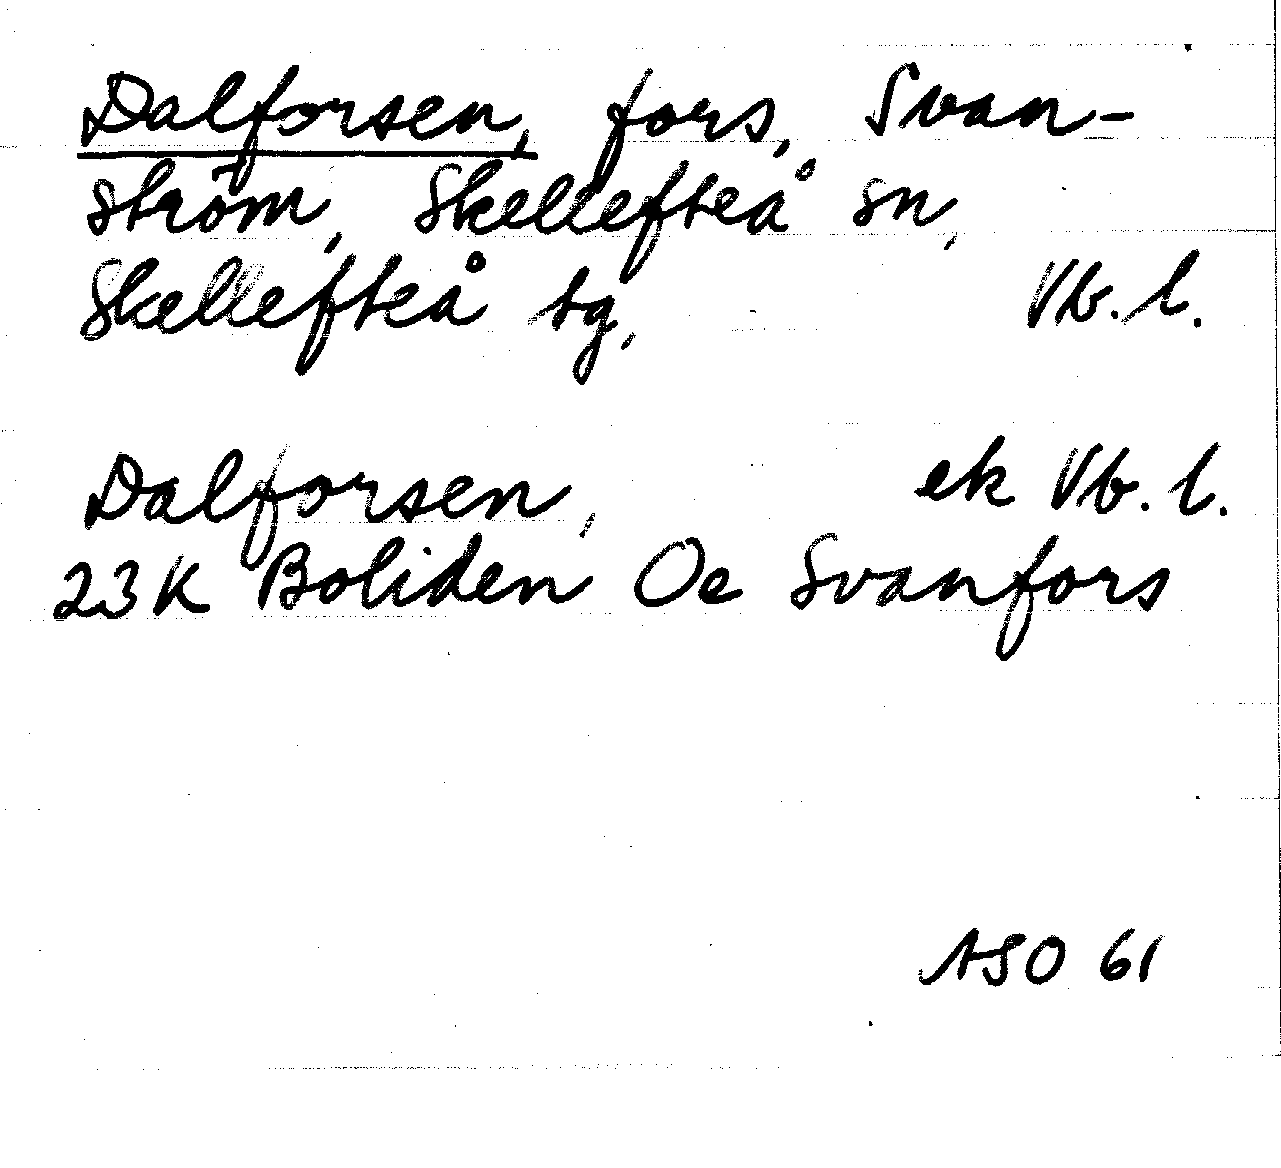 Dalforsen, fors, Svan-
ström, Skellefteå sn,
Skellefteå tg, Vb. l.
Dalforsen, ek Vb. l.
23K Boliden Oe Svanfors
ASO 61